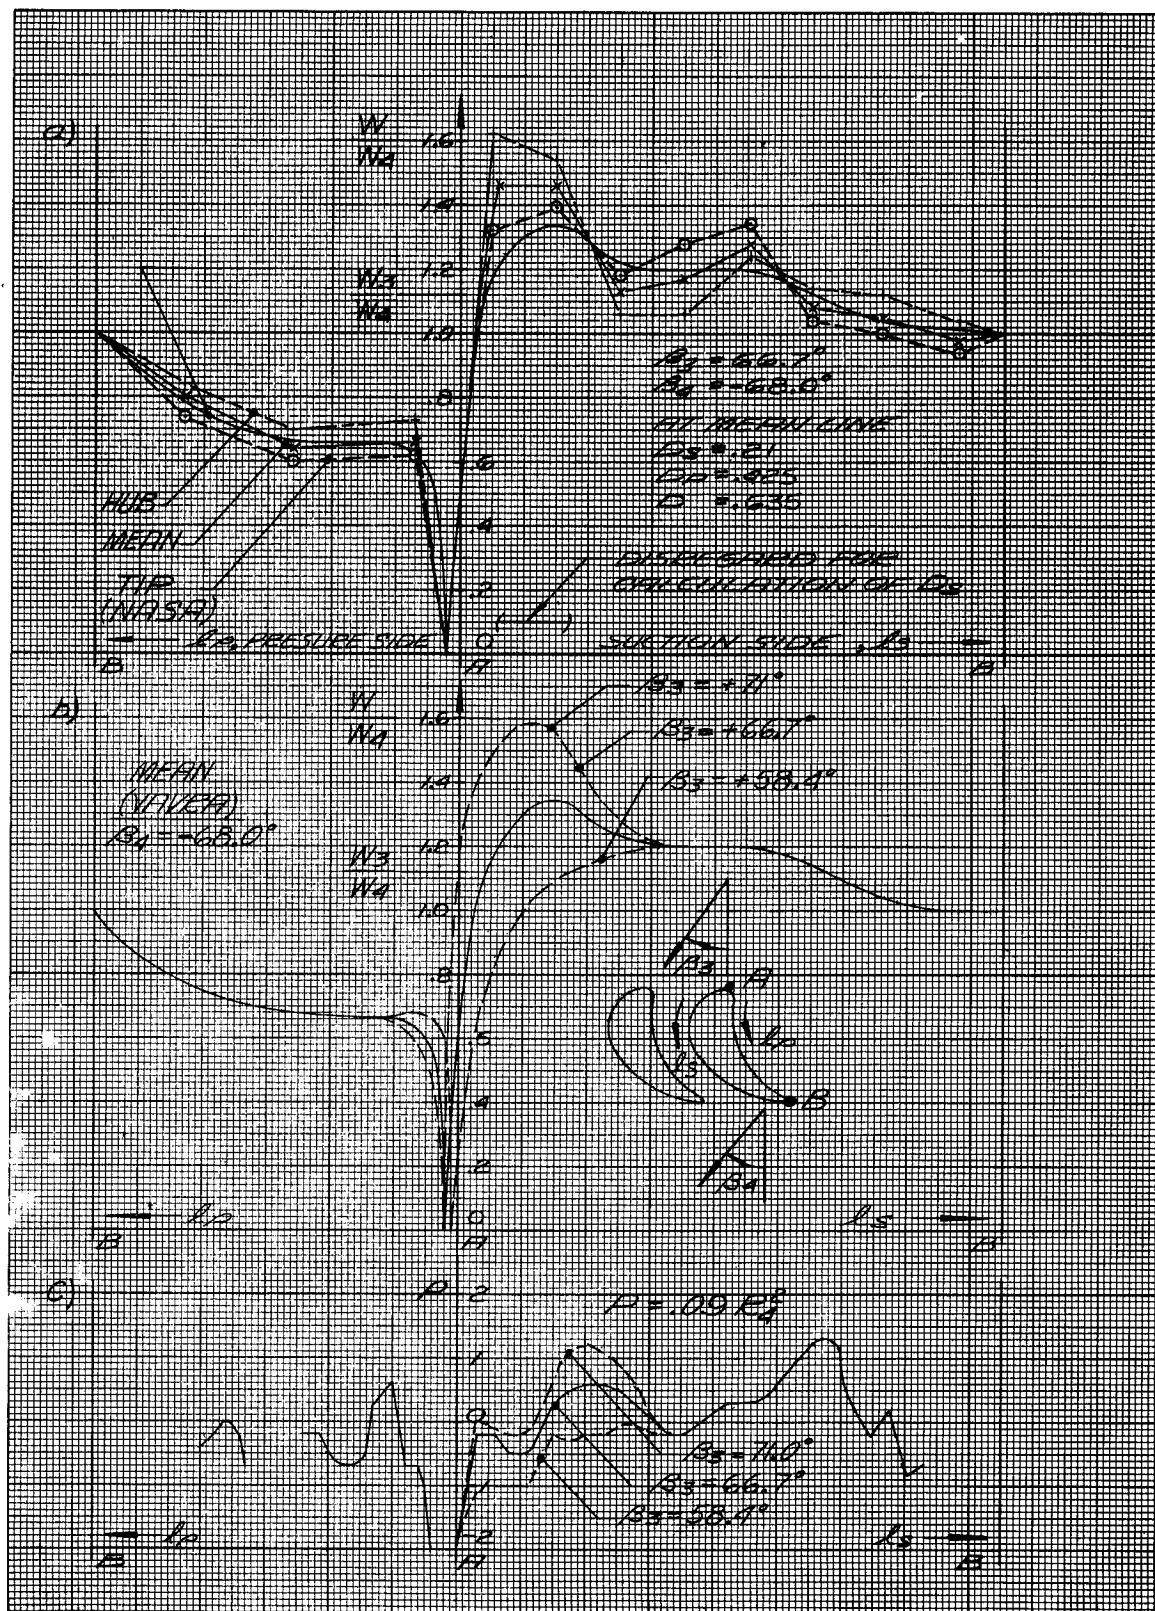 a)
W
W4
1.6
1.4
1.2
W3
W4
1.0
.8
.6
.4
.2
0
β3 = 66.7°
β4 = -68.0°
AT MEAN LINE
Ds = .21
Dp = .425
D = .635
HUB
MEAN
TIP
(NASA)
DISREGARD FOR
CALCULATION OF Ds
lp, PRESSURE SIDE
SUCTION SIDE, ls
B
A
B
b)
W
W4
1.6
1.4
1.2
W3
W4
1.0
.8
.6
.4
.2
0
β3 = +71°
β3 = +66.7°
β3 = +58.4°
MEAN
(VAVRA)
β4 = -68.0°
β3
A
lp
ls
B
β4
lp
ls
B
A
B
c)
P
2
1
0
-2
P = .09
β3 = 71.0°
β3 = 66.7°
β3 = 58.4°
lp
ls
B
A
B